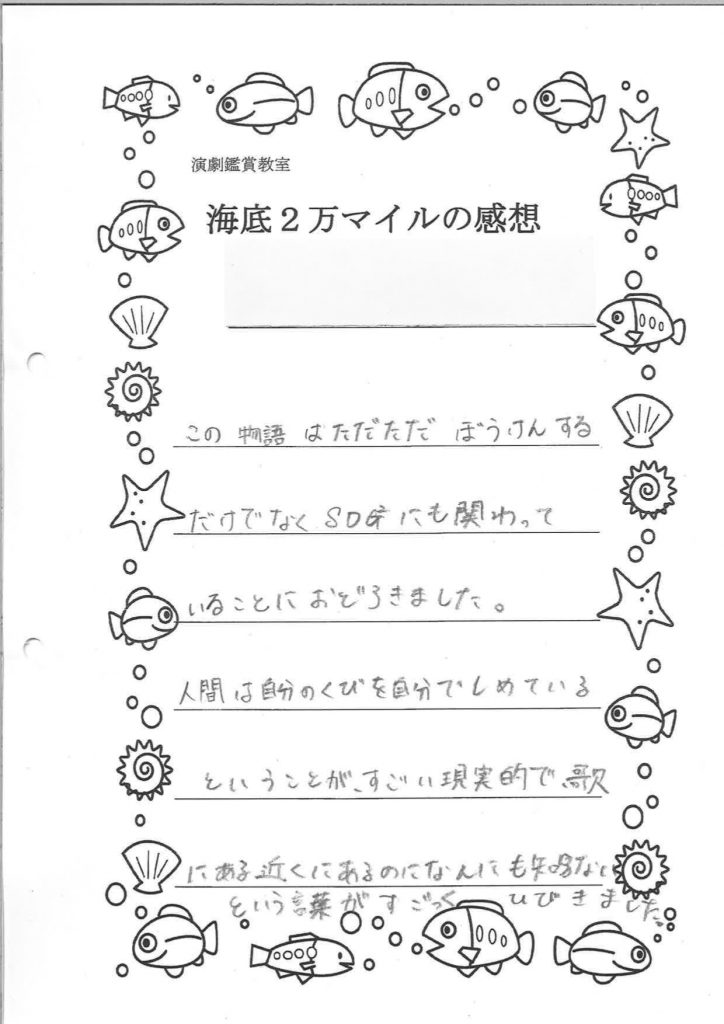 演劇鑑賞教室
海底２万マイルの感想
この 物語 はただただ ぼうけんする
だけでなく SDGにも関わって
いることに おどろきました。
人間は自分のくびを自分でしめている
ということが、すごい現実的で、歌
にある近くにあるのになんにも知らない
という言葉が すごっく ひびきました。